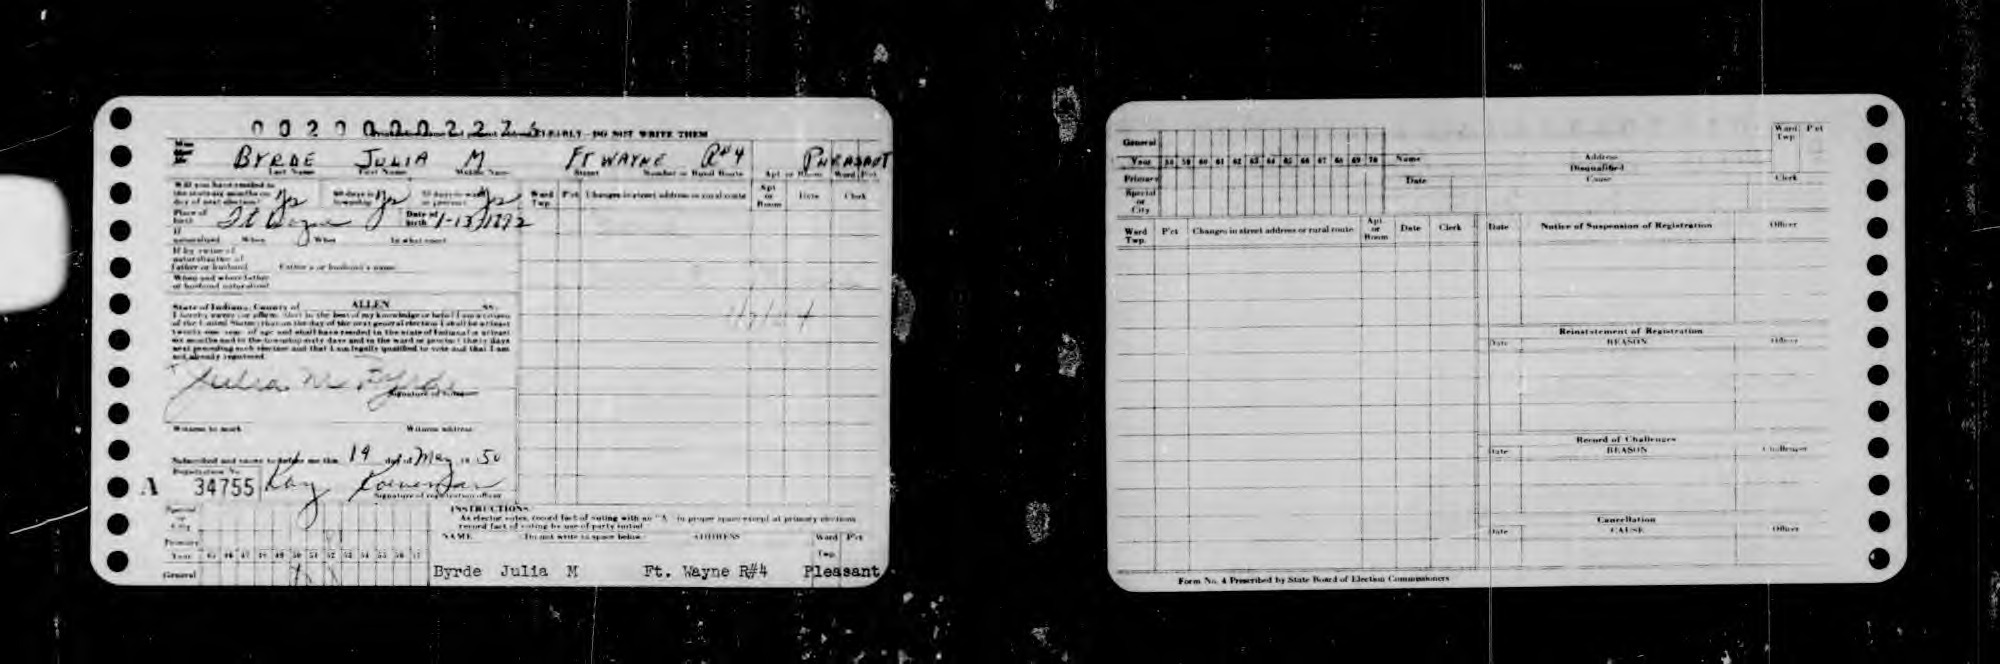 0020000227
CLEARLY - DO NOT WRITE THEM
BYRDE JULIA M FT WAYNE R#4 PLEASANT
Last Name First Name Middle Name Street Number or Rural Route Apt or Room Ward Pct
Will you have resided in
the state six months on
day of next election? yes 60 days in township yes 30 days in ward or precinct yes
Ward Twp. P'ct Changes in street address or rural route Apt or Room Date Clerk
Place of birth Ft Wayne Date of birth 1-13-1892
If naturalized When Where In what court
If by virtue of
naturalization of
father or husband Father's or husband's name
When and where father
or husband naturalized
State of Indiana, County of ALLEN ss:
I hereby swear (or affirm) that to the best of my knowledge or belief I am a citizen
of the United States; that on the day of the next general election I shall be at least
twenty-one years of age and shall have resided in the state of Indiana for at least
six months and in the township sixty days and in the ward or precinct thirty days
next preceding such election and that I am legally qualified to vote and that I am
not already registered.
Julia M Byrde
Signature of Voter
Witness to mark Witness address
Subscribed and sworn to before me this 19 day of May 19 50
Registration No.
A 34755 Kay
Signature of registration officer
Special or City
Primary
Year 45 46 47 48 49 50 51 52 53 54 55 56 57
General
INSTRUCTIONS
As elector votes, record fact of voting with an "A" in proper space except at primary elections
record fact of voting by use of party initial
NAME Do not write in space below ADDRESS Ward P'ct
Twp.
Byrde Julia M Ft. Wayne R#4 Pleasant
General
Year 58 59 60 61 62 63 64 65 66 67 68 69 70
Primary
Special or City
Name Address Ward Twp. P'ct
Disqualified
Date Cause Clerk
Ward Twp. P'ct Changes in street address or rural route Apt or Room Date Clerk
Date Notice of Suspension of Registration Officer
Reinstatement of Registration
Date REASON Officer
Record of Challenges
Date REASON Challenger
Cancellation
Date CAUSE Officer
Form No. 4 Prescribed by State Board of Election Commissioners